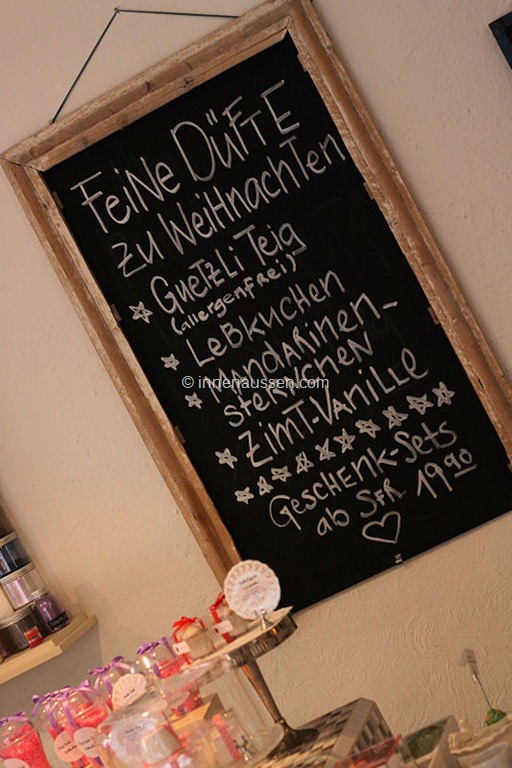 FeiNe DüFTE
zu Weihnachten
GueTzLi Teig
(allergenfrei)
LebKuchen
MandaRinen-
sTeRNcheN
ZimT-Vanille
Geschenk-Sets
ab SFR 19.90
© innenaussen.com